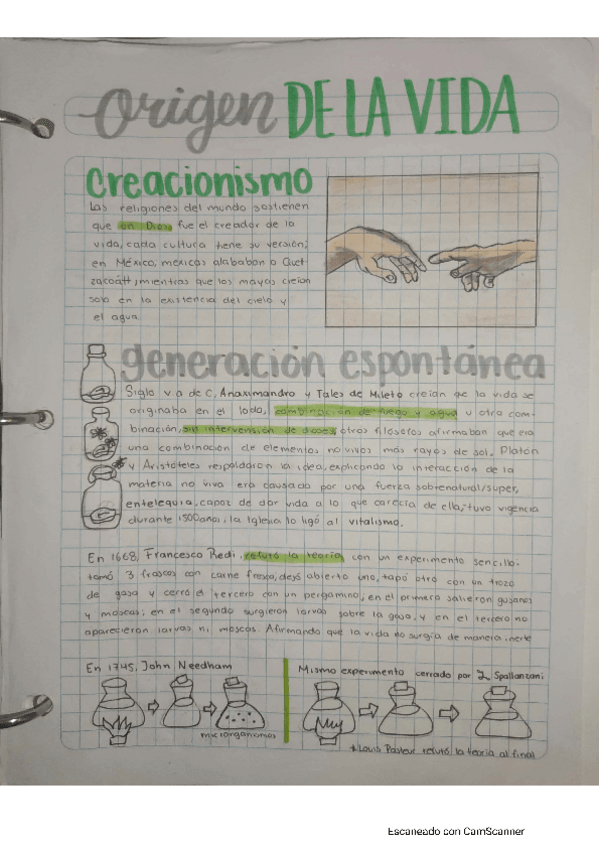 origen DE LA VIDA
creacionismo
Las religiones del mundo sostienen
que un Dios fue el creador de la
vida, cada cultura tiene su versión;
en México, mexicas alababan a Quet
zacoátl, mientras que los mayas creían
solo en la existencia del cielo y
el agua.
generación espontánea
Siglo V a de C, Anaximandro y Tales de Mileto creían que la vida se
originaba en el lodo, combinación de fuego y agua u otra com-
binación, sin intervención de dioses; otros filósofos afirmaban que era
una combinación de elementos no vivos más rayos de sol. Platón
y Aristóteles respaldaron la idea, explicando la interacción de la
materia no viva era causada por una fuerza sobrenatural/super,
entelequia, capaz de dar vida a lo que carecía de ella, tuvo vigencia
durante 1500años, la Iglesia lo ligó al vitalismo.
En 1668, Francesco Redi, refutó la teoría, con un experimento sencillo:
tomó 3 frascos con carne fresca, dejó abierto uno, tapó otro con un trozo
de gasa y cerró el tercero con un pergamino, en el primero salieron gusanos
y moscas; en el segundo surgieron larvas sobre la gasa, y en el tercero no
aparecieron larvas ni moscas. Afirmando que la vida no surgía de manera inerte
En 1745, John Needham
microorganismos
Mismo experimento cerrado por L Spallanzani
*Louis Pasteur refutó la teoría al final
Escaneado con CamScanner